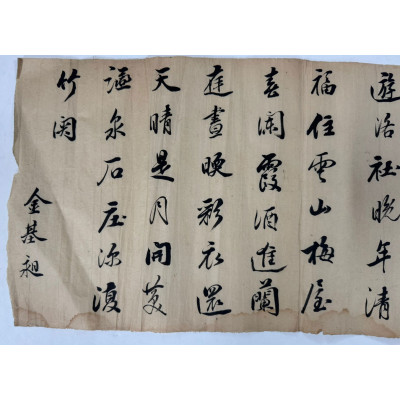 遊洛社晚年清
福住雲山梅屋
春霞酒進蘭
庭晝暖彩衣還
天晴是月開
溢泉石庄深復
竹関
金基